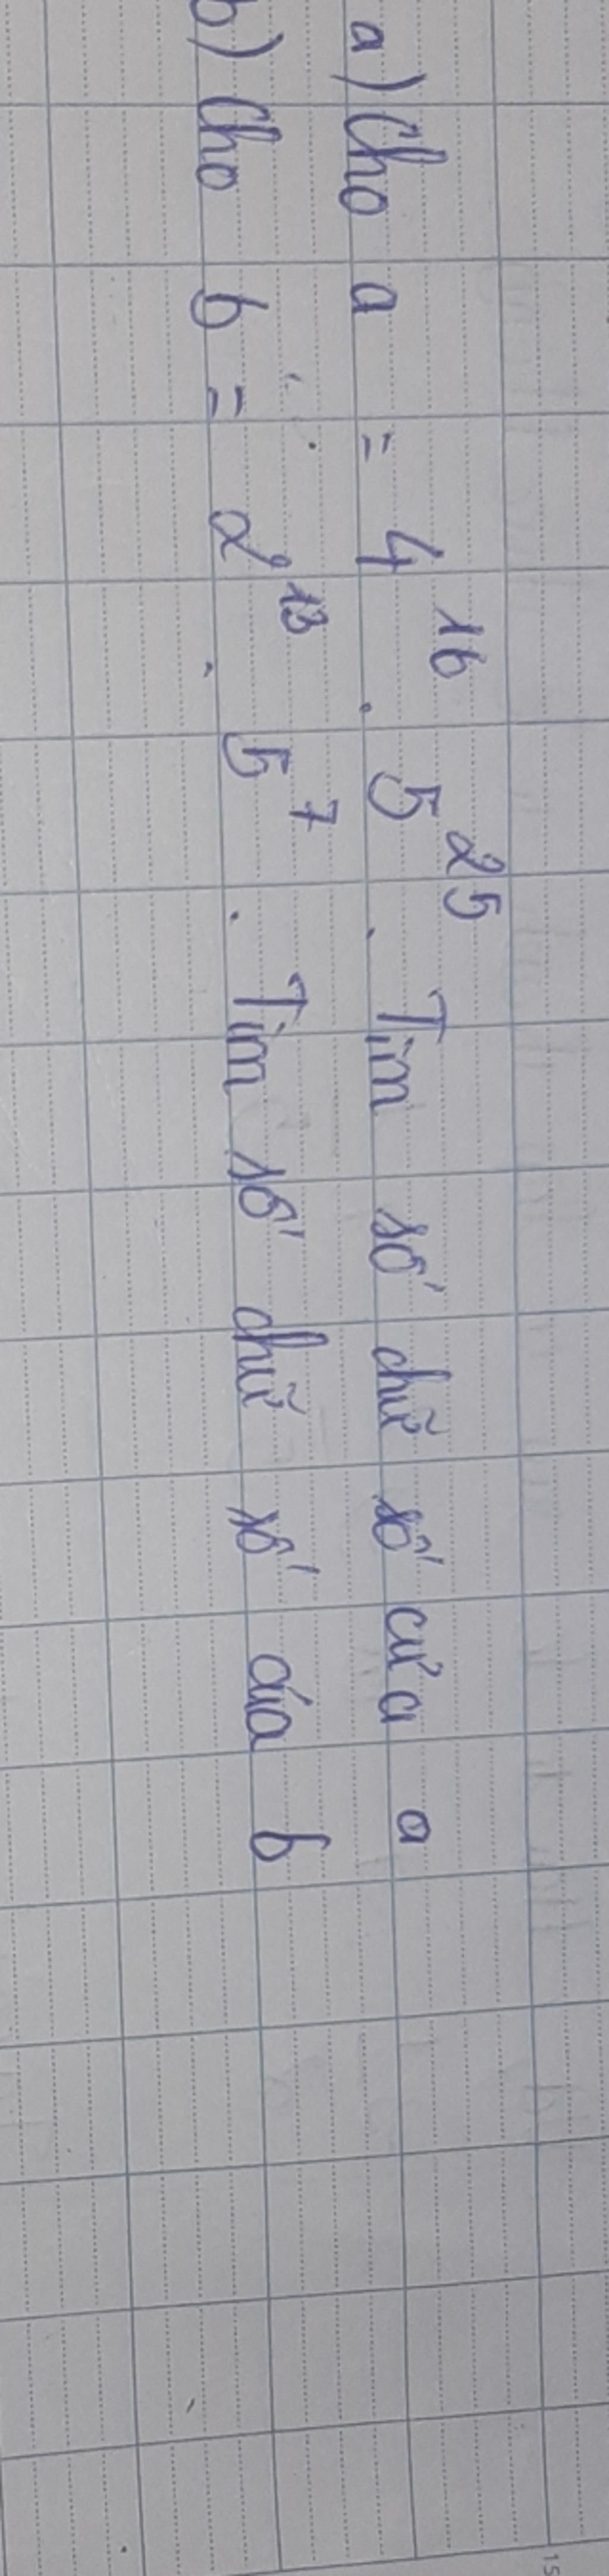 a) Cho a = 4^16 . 5^25 . Tìm số chữ số của a
b) Cho b = 2^13 . 5^7 . Tìm số chữ số của b
15